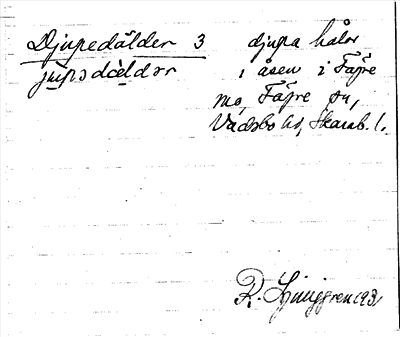 Djupedälder 3
jupsdældɜr
djupa hålor
i åsen i Fägre
mo, Fägre sn,
Vadsbo hd, Skarab. l.
R. Ljunggren 1931